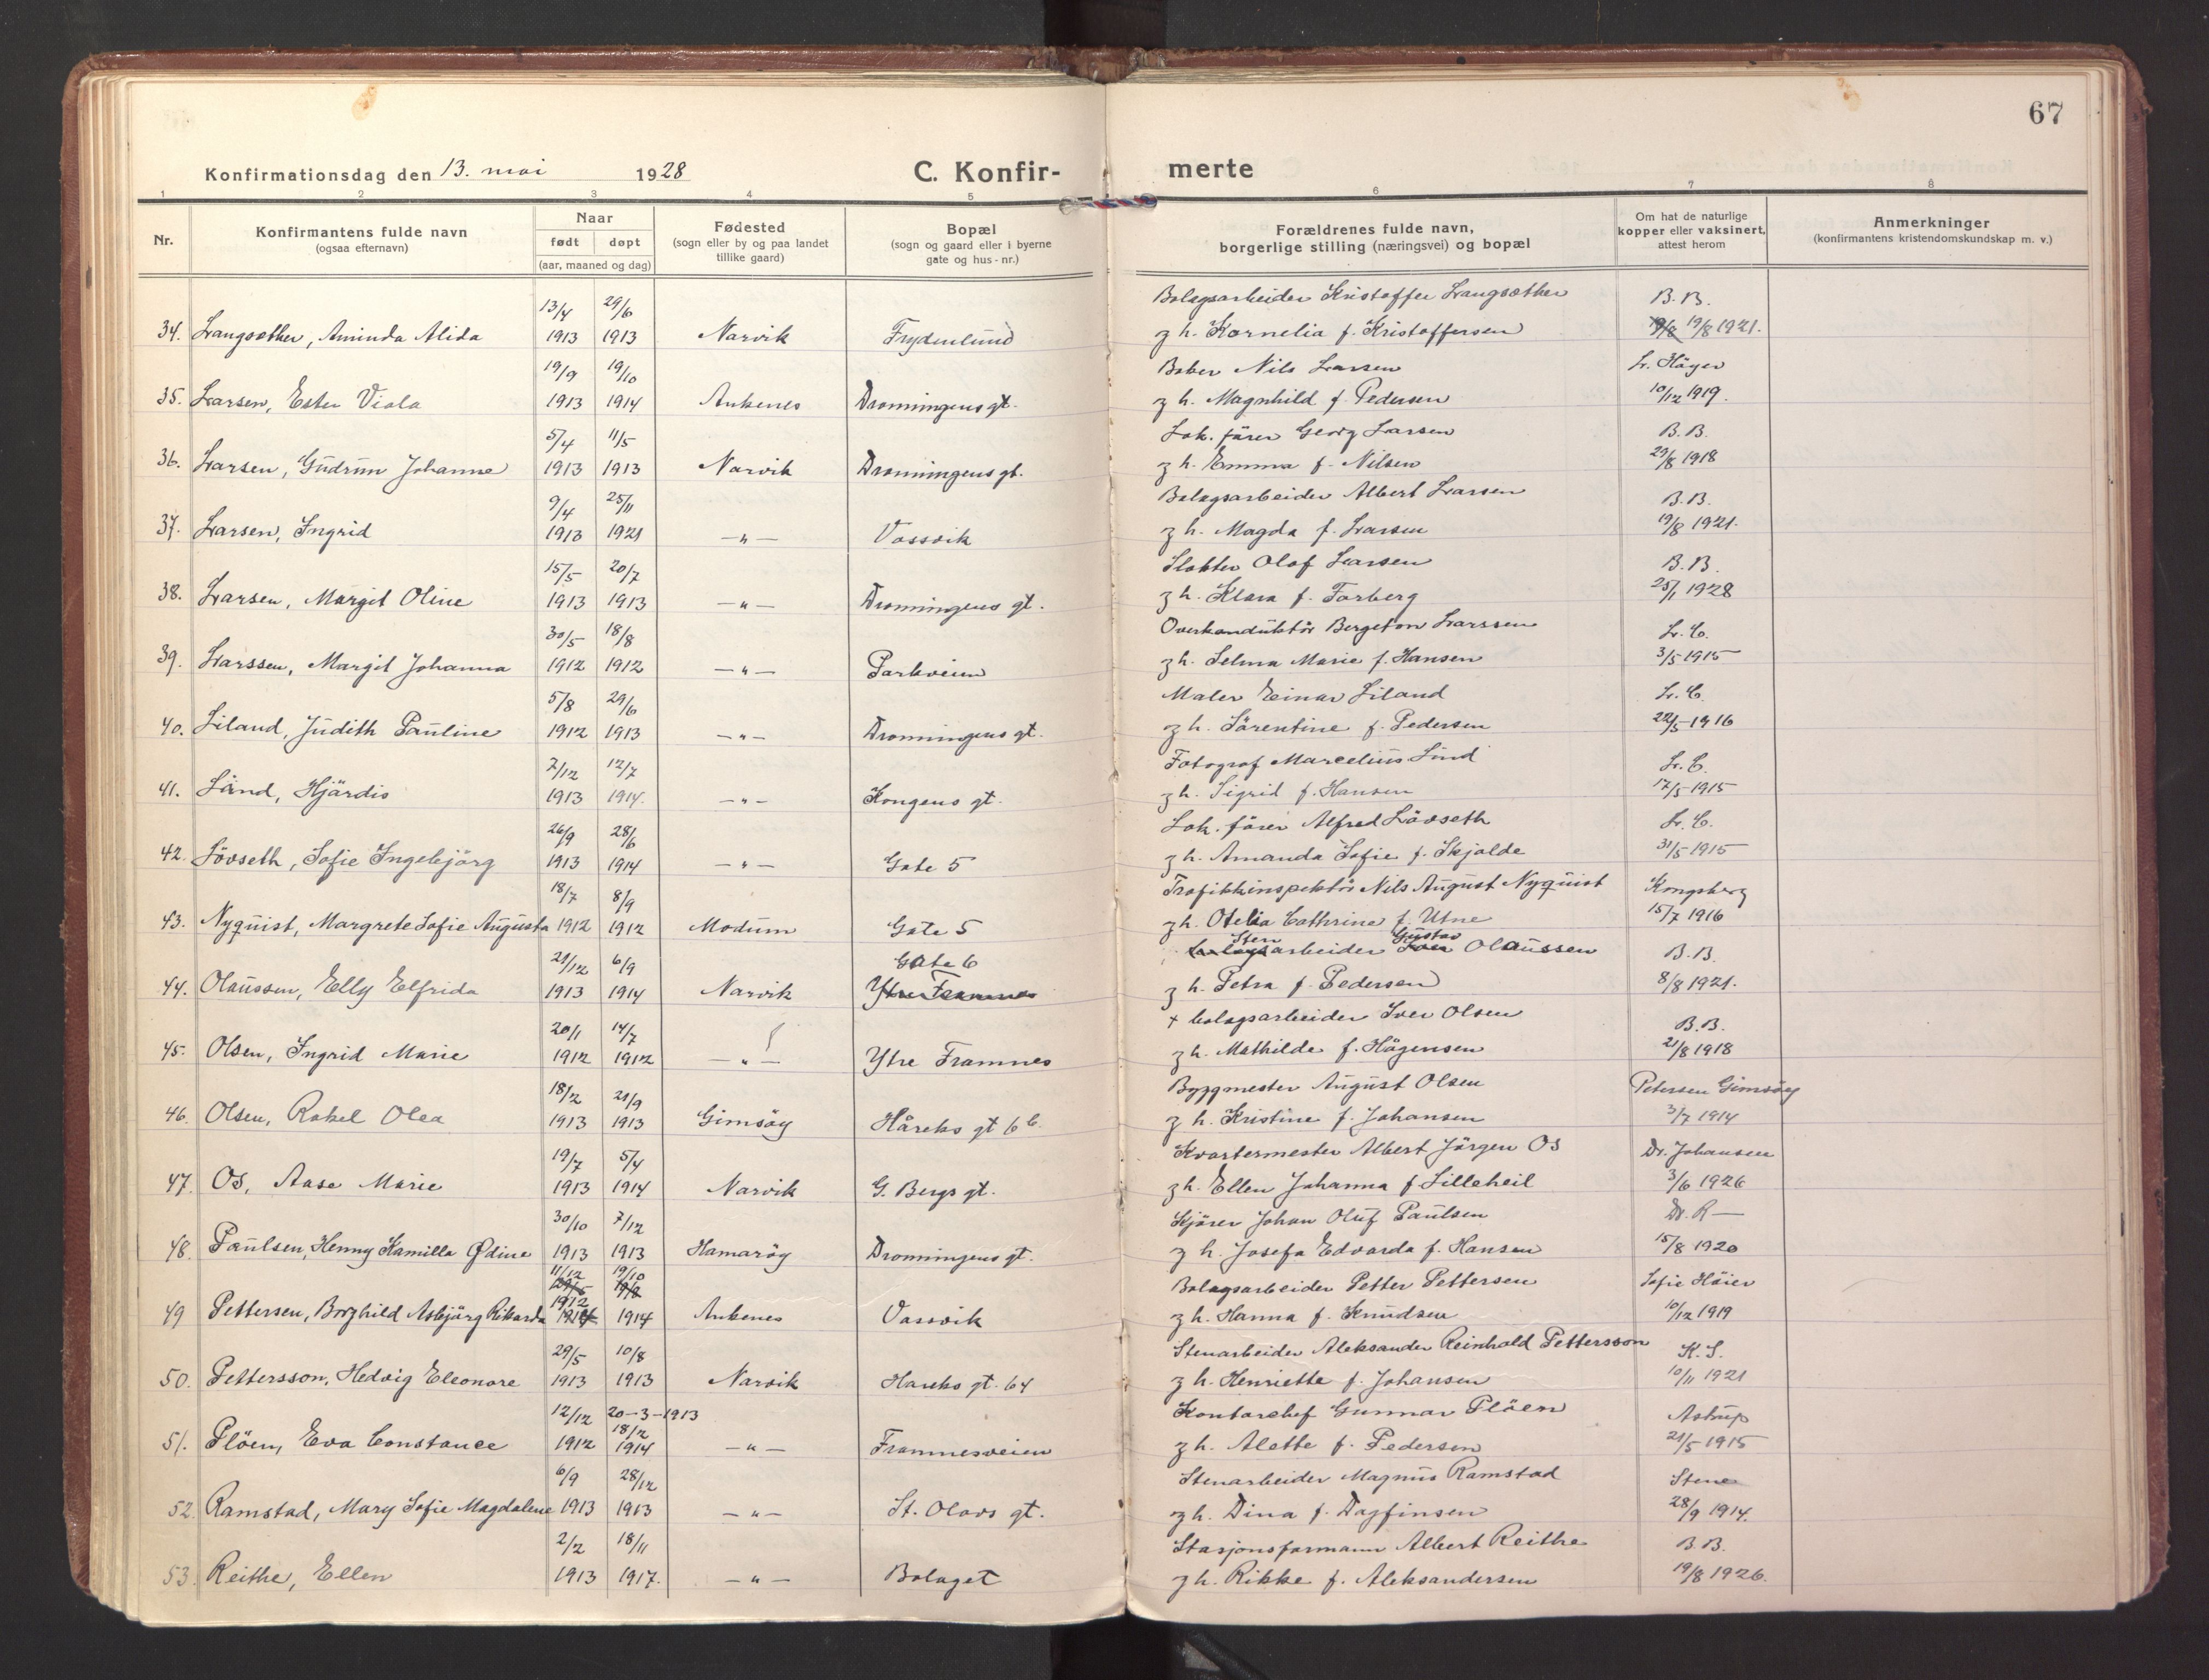 67
Konfirmationsdag den 13. mai 1928 C. Konfir- merte
1 2 3 4 5 6 7 8
Nr.
Konfirmantens fulde navn
(ogsaa efternavn)
Naar
født døpt
(aar, maaned og dag)
Fødested
(sogn eller by og paa landet
tillike gaard)
Bopæl
(sogn og gaard eller i byerne
gate og hus-nr.)
Forældrenes fulde navn,
borgerlige stilling (næringsvei) og bopæl
Om hat de naturlige
kopper eller vaksinert,
attest herom
Anmerkninger
(konfirmantens kristendomskundskap m. v.)
13/4 29/6 Bolagsarbeider Kristoffer Langsæther B.B.
34. Langsæther, Aminda Alida 1913 1913 Narvik Frydenlund g h. Kornelia f. Kristoffersen 19/8 1921.
19/9 19/10 Baker Nils Larsen Lr. Häger
35. Larsen, Ester Viola 1913 1914 Ankenes Dronningens gt. g h. Magnhild f. Pedersen 10/12 1919.
5/4 11/5 Lok. fører Georg Larsen B.B.
36. Larsen, Gudrun Johanne 1913 1913 Narvik Dronningens gt. g h. Emma f. Nilsen 29/8 1918
9/4 25/11 Bolagsarbeider Albert Larsen B.B.
37. Larsen, Ingrid 1913 1921 —"— Vassvik g h. Magda f. Larsen 19/8 1921.
15/5 20/7 Slakter Olof Larsen B.B.
38. Larsen, Margit Oline 1913 1913 —"— Dronningens gt. g h. Klara f. Forberg 25/1 1928
30/5 18/8 Overkonduktör Bergeton Larssen Lr. C.
39. Larssen, Margit Johanna 1912 1912 —"— Parkveien g h. Selma Marie f. Hansen 3/5 1915
5/8 29/6 Maler Einar Liland Lr. C.
40. Liland, Judith Pauline 1912 1913 —"— Dronningens gt. g h. Sörentine f. Pedersen 22/5-1916
7/12 12/7 Fotograf Marcelius Lund Lr. C.
41. Lund, Hjärdis 1913 1914. —"— Kongens gt. g h. Sigrid f. Hansen 17/5-1915
26/9 28/6 Lok. fører Alfred Lövseth Lr. C.
42. Lövseth, Sofie Ingebjörg 1913 1914 —"— Gate 5 g h. Amanda Sofie f. Skjolde 31/5 1915
18/7 8/9 Trafikkinspektör Nils August Nyquist Kongsberg
43. Nyquist, Margrete Sofie Augusta 1912 1912 Modum Gate 5 g h. Otelia Cathrine f. Utne 15/7 1916
21/12 6/9 Gate 6 Stenarbeider Gustav Olaussen B.B.
44. Olaussen, Elly Elfrida 1913 1914 Narvik Ytre Framnes g h. Petra f. Pedersen 8/8 1921.
20/1 14/7 + bolagsarbeider Iver Olsen B.B.
45. Olsen, Ingrid Marie 1912 1912 —"— Ytre Framnes g h. Mathilde f. Hågensen 21/8 1918
18/2 21/9 Byggmester August Olsen Petersen Gimsöy
46. Olsen, Rakel Olea 1913 1913 Gimsöy Håreks gt 6 b. g h. Kristine f. Johansen 3/7 1914
19/7 5/4 Kvartermester Albert Jörgen Os Dr. Johansen
47. Os, Aase Marie 1913 1914 Narvik G. Bergs gt. g h. Ellen Johanna f Lilleheil 3/6 1926
30/10 7/12 Kjörer Johan Oluf Paulsen Dr. R—
48. Paulsen, Henny Kamilla Ødine 1913 1913 Hamaröy Dronningens gt. g h. Josefa Edvarda f. Hansen 15/8 1920
11/12 19/10 Bolagsarbeider Petter Pettersen Sofie Häier
1912
49 Pettersen, Borghild Asbjörg Rikarda 1914 1914 Ankenes Vassvik g h. Hanna f. Knudsen 10/12 1919
29/5 10/8 Stenarbeider Aleksander Reinhold Pettersson K.S.
50. Pettersson, Hedvig Eleonore 1913 1913 Narvik Hareks gt. 64 g h. Henriette f. Johansen 10/11 1921
12/12 20-3-1913 Kontorchef Gunnar Plöen Astrup
18/2
51. Plöen, Eva Constance 1912 1914 —"— Framnesveien g h. Alette f. Pedersen 21/5 1915
6/9 28/12 Stenarbeider Magnus Ramstad Stene
52. Ramstad, Mary Sofie Magdalene 1913 1913 —"— St. Olavs gt. g h. Dina f. Dagfinsen 28/9 1914.
2/2 18/11 Stasjonsformann Albert Reithe B.B.
53. Reithe, Ellen 1913 1917. —"— Bolaget g h. Rikke f. Aleksandersen 19/8 1926.